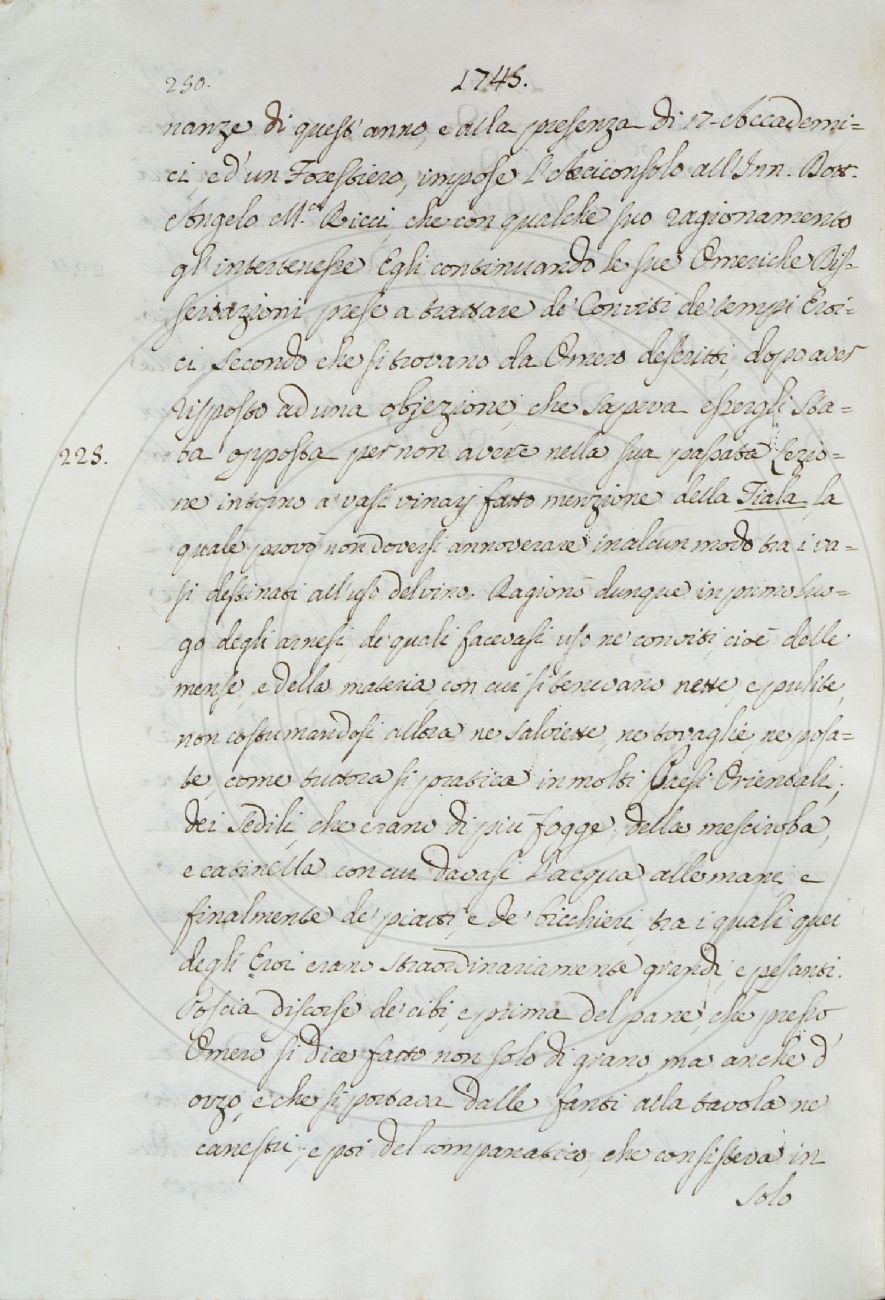 250.
1745.
nanze di quest' anno, e alla presenza di 17. Accademi=
ci, e d' un Forestiero, impose l' Arciconsolo all' Inn. Dott.
Angelo M.ª Ricci, che con qualche suo ragionamento
gl' intertenesse. Egli continuando le sue Omeriche Dis=
sertazioni prese a trattare de' Conviti de' tempi Eroi=
ci, secondo che si trovano da Omero descritti, dopo aver
risposto ad una objezione, che sapeva essergli sta=
225.
ta opposta per non avere nella sua passata Lezio=
ne intorno a' vasi vinarj fatto menzione della Fiala, la
quale provò non doversi annoverare in alcun modo tra i va=
si destinati all' uso del vino. Ragionò dunque in primo luo=
go degli arnesi, de' quali facevasi uso ne' conviti, cioè delle
mense, e della materia, con cui si tenevano nette, e pulite,
non costumandosi allora ne salviette, ne tovaglie, ne posa=
te, come tuttora si pratica in molti Paesi Orientali;
dei Sedili, che erano di più fogge; della mesciroba,
e catinella con cui davasi l' acqua alle mani, e
finalmente de' piatti e de' bicchieri, tra i quali quei
degli Eroi erano straordinariamente grandi, e pesanti.
Poscia discorse de' cibi, e prima del pane, che presso
Omero si dice fatto non solo di grano, ma anche d'
orzo, e che si portava dalle fanti alla tavola ne'
canestri; e poi del companatico, che consisteva in
solo